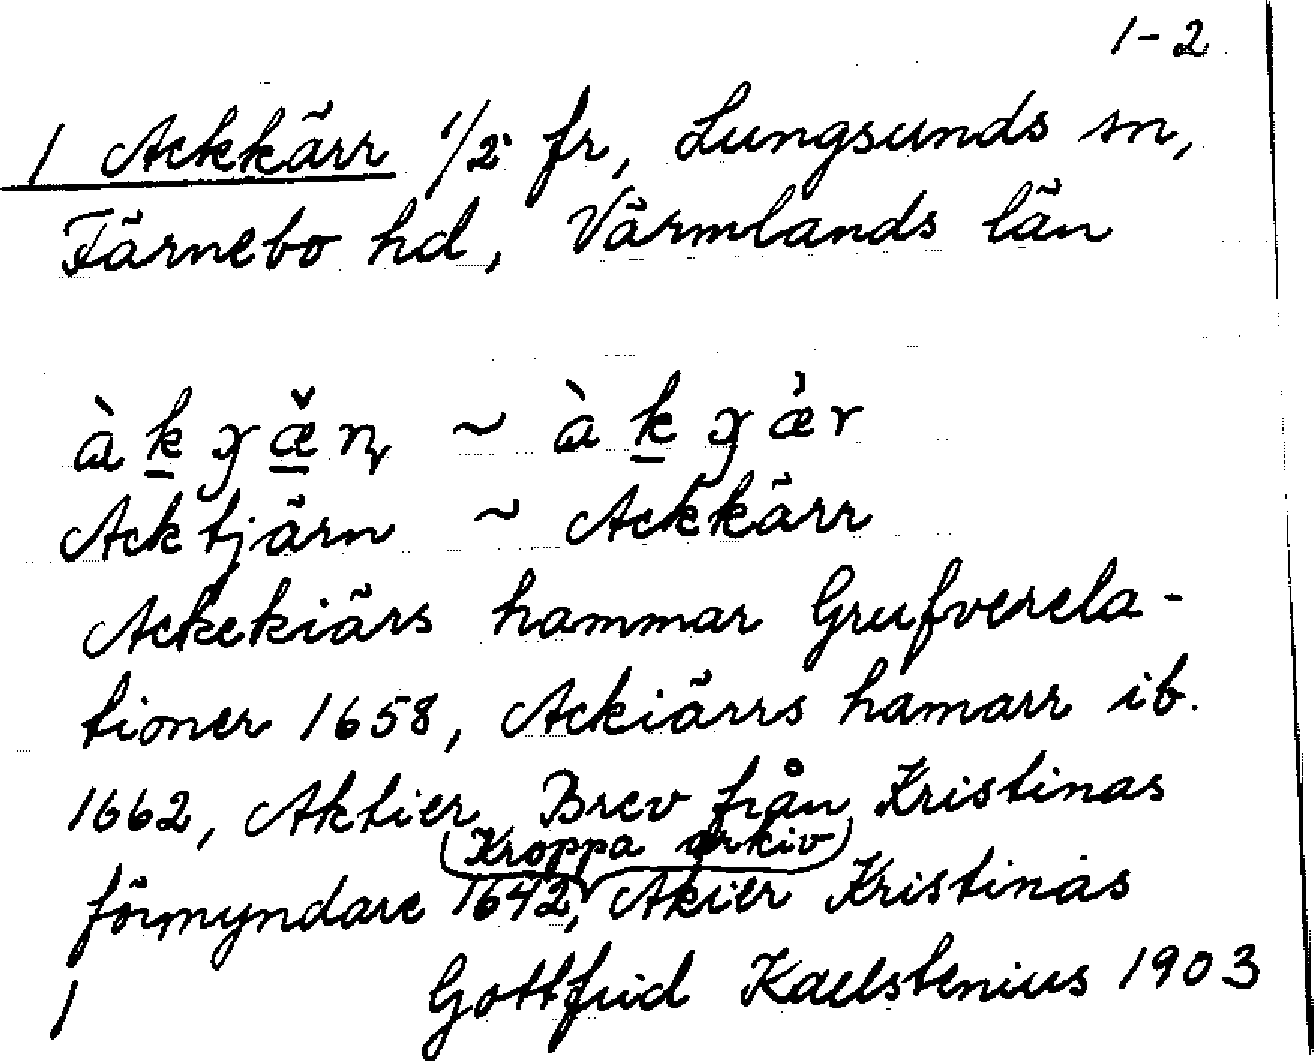 1-2
1 Ackkärr 1/2 fr, Lungsunds sn,
Färnebo hd, Värmlands län
àkɣæ̌ɳ ~ àkɣæ̀r
Acktjärn ~ Ackkärr
Ackekiärs hammar Grufverela-
tioner 1658, Ackiärrs hamarr ib.
1662, Aktier Brev från Kristinas
(Kroppa arkiv)
förmyndare 1642, Akier Kristinas
1 Gottfrid Kallstenius 1903